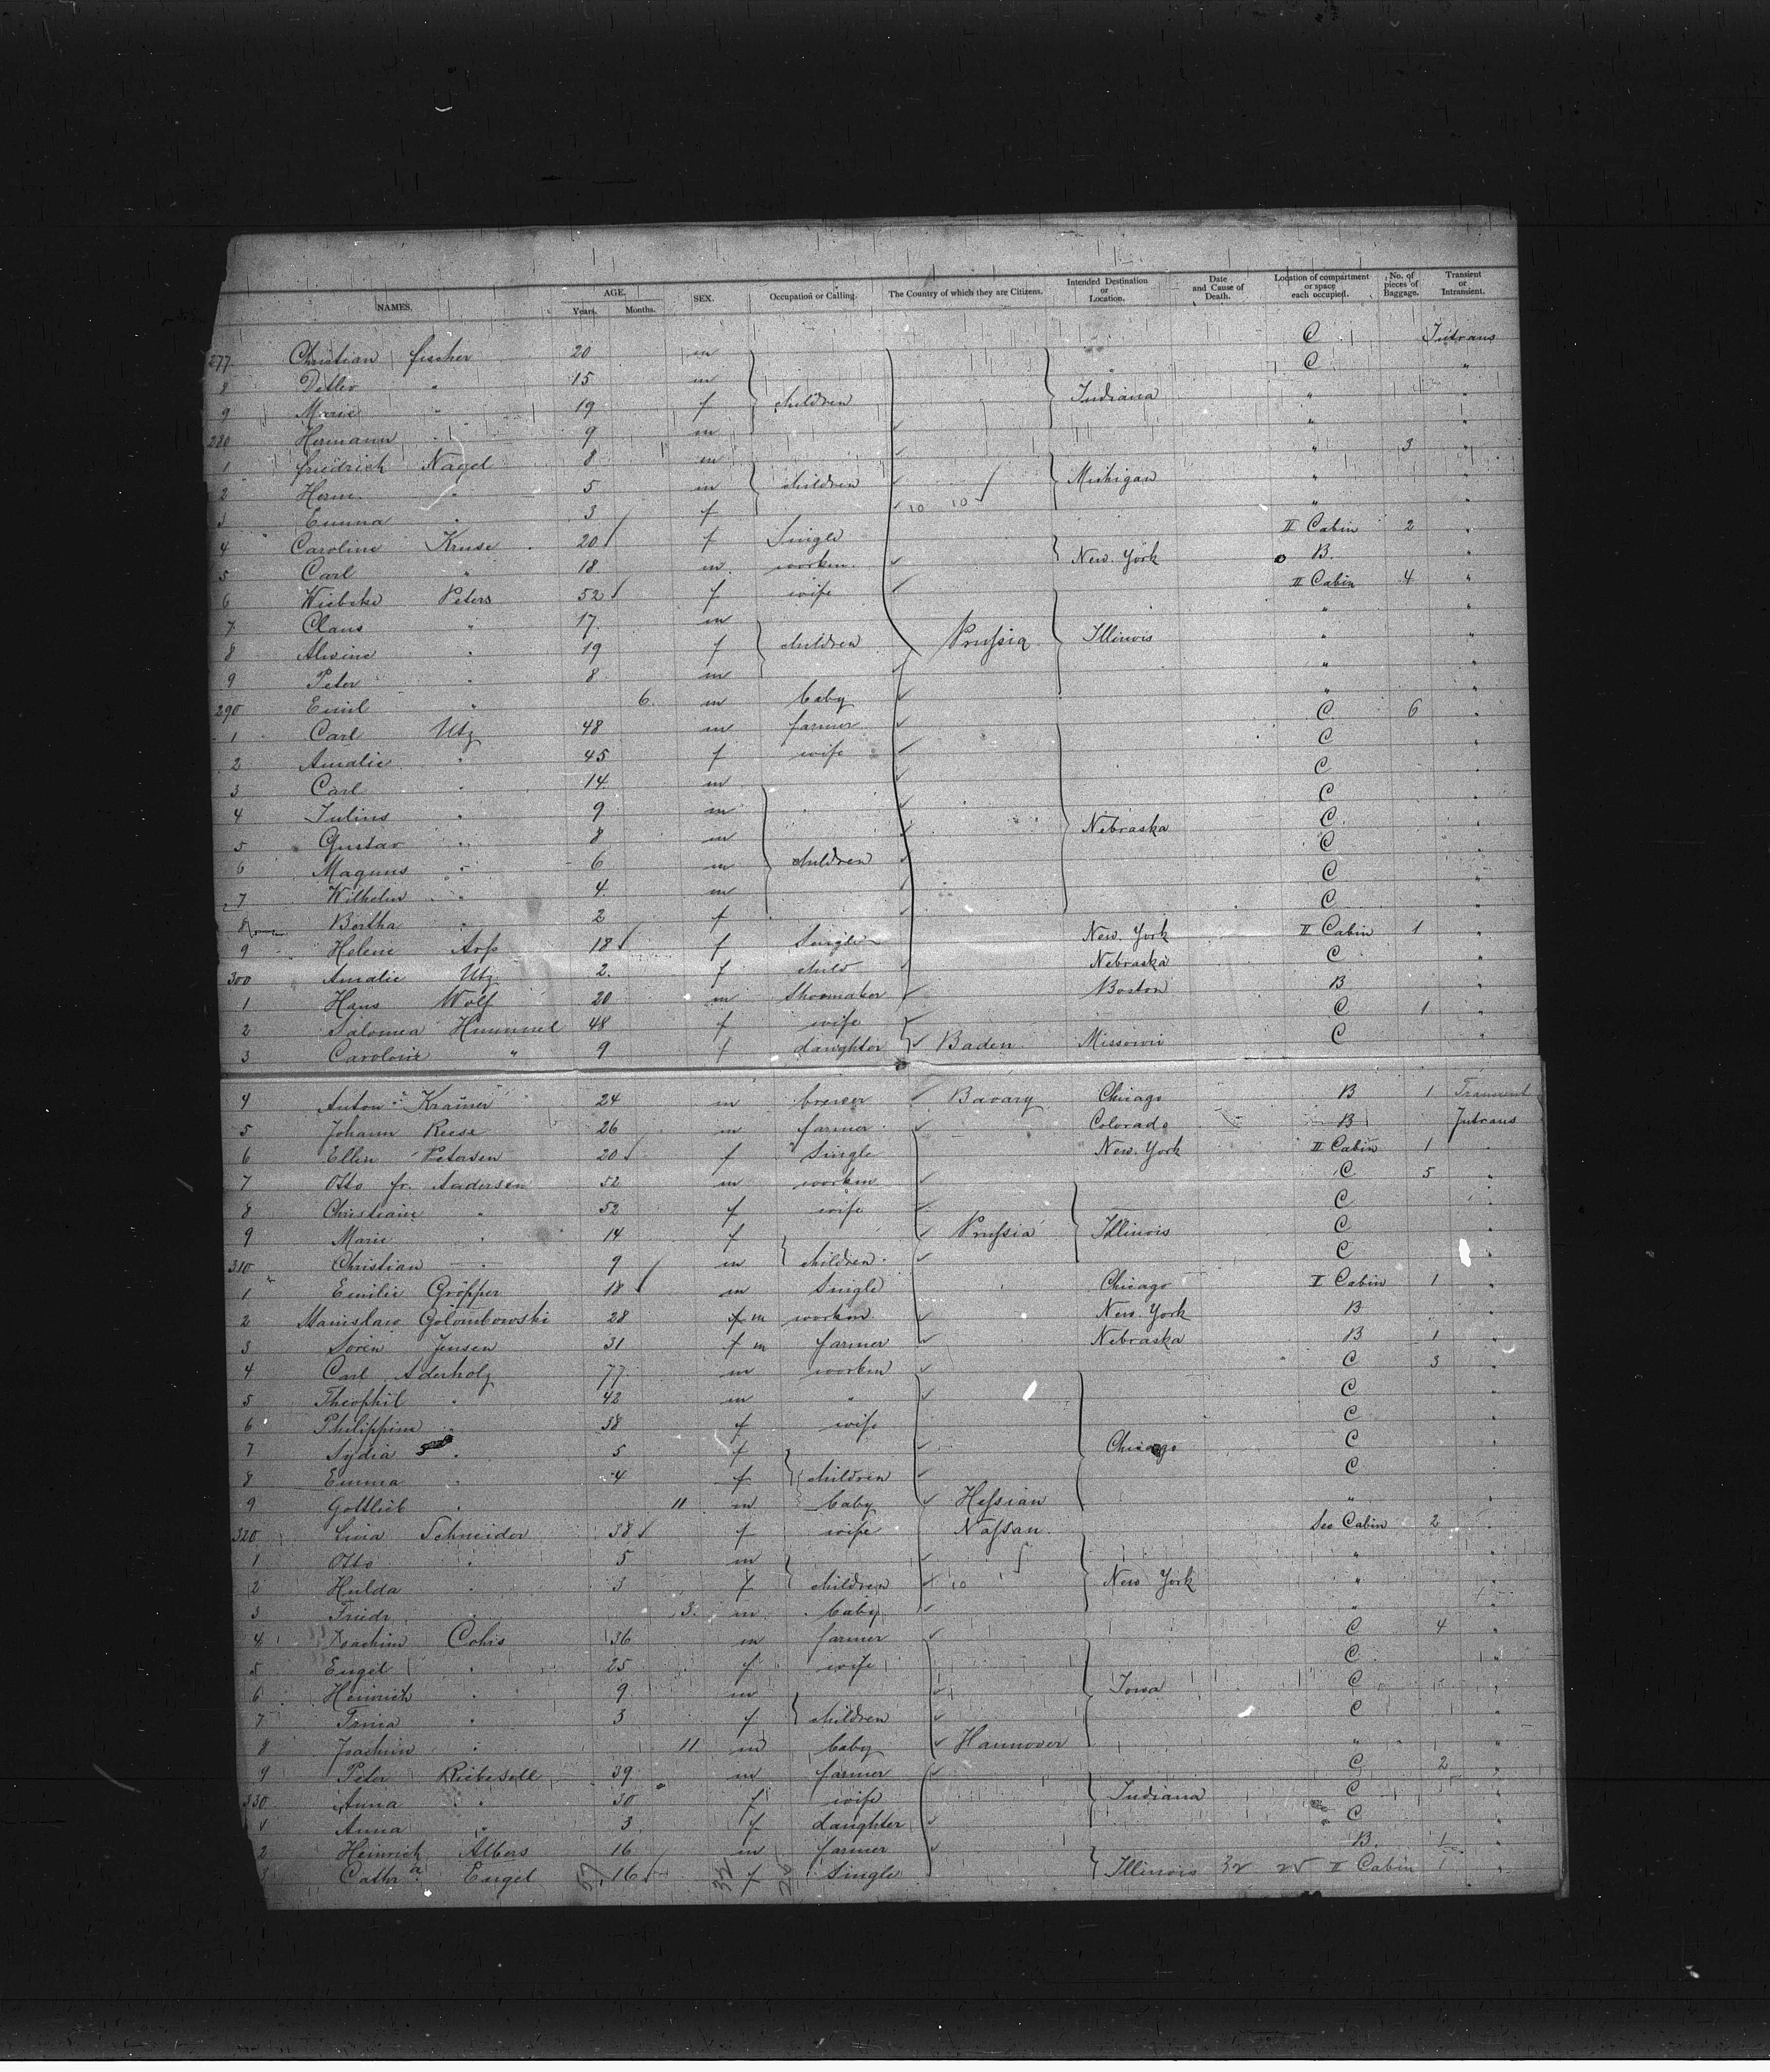 NAMES. AGE. Years. Months. SEX. Occupation or Calling. The Country of which they are Citizens. Intended Destination or Location. Date and Cause of Death. Location of compartment or space each occupied. No. of pieces of Baggage. Transient or Intransient.
277 Christian Fischer 20 m C Intrans
8 Detlev " 15 m C "
9 Marie " 19 f children Indiana " "
280 Hermann " 9 m " "
1 Friedrich Nagel 8 m " 3 "
2 Herm. " 5 m children Michigan " "
3 Emma " 3 f 10 10 " "
4 Caroline Kruse 20 f Single II Cabin 2 "
5 Carl " 18 m workm. New York B. "
6 Wiebcke Peters 52 f wife II Cabin 4 "
7 Claus " 17 m " "
8 Alwine " 19 f children Prussia Illinois " "
9 Peter " 8 m " "
290 Emil " 6 m baby " "
1 Carl Utz 48 m farmer C 6 "
2 Amalie " 45 f wife C "
3 Carl " 14 m C "
4 Julius " 9 m C "
5 Gustav " 8 m Nebraska C "
6 Magnus " 6 m children C "
7 Wilhelm " 4 m C "
8 Bertha " 2 f C "
9 Helene Arp 18 f Single New York II Cabin 1 "
300 Amalie Utz 2 f child Nebraska C "
1 Hans Wolf 20 m Shoemaker Boston B "
2 Salomea Hummel 48 f wife C 1 "
3 Caroline " 9 f daughter Baden Missouri C "
4 Anton Kramer 24 m brewer Bavary Chicago B 1 Transient
5 Johann Reese 26 m farmer Colorado B Intrans
6 Ellin Petersen 20 f Single New York II Cabin 1 "
7 Otto Fr. Andersen 52 m workm C 5 "
8 Christiane " 52 f wife C "
9 Marie " 14 f Prussia Illinois C "
310 Christian " 9 m children C "
1 Emilie Gröpper 18 m Single Chicago I Cabin 1 "
2 Stanislaw Golombowski 28 f m workm New York B "
3 Sören Jensen 31 f m farmer Nebraska B 1 "
4 Carl Aderholz 77 m workm C 3 "
5 Theophil " 42 m " C "
6 Philippine " 38 f wife C "
7 Lydia " 5 f Chicago C "
8 Emma " 4 f children C "
9 Gottlieb " 11 m baby Hessian " "
320 Livia Schneider 38 f wife Nassau Sec Cabin 2 "
1 Otto " 5 m " "
2 Hulda " 3 f children 10 New York " "
3 Friedr. " 3 m baby " "
4 Joachim Cohrs 36 m farmer C 4 "
5 Engel " 25 f wife C "
6 Heinrich " 9 m Iowa C "
7 " 3 f children C "
8 Joachim " 11 m baby Hannover " "
9 Peter Riebesell 39 m farmer C 2 "
330 Anna " 30 f wife Indiana C "
1 Anna " 3 f daughter C "
2 Heinrich Albers 16 m farmer B. 1 "
3 Cathra Engel 16 f Single Illinois 32 25 II Cabin 1 "
57 32